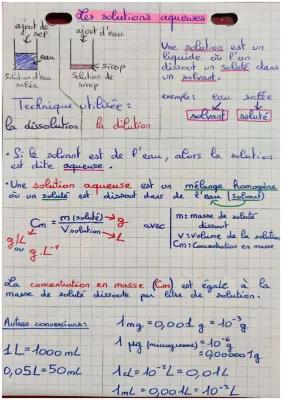 Les solutions aqueuses
ajout de sel
ajout d'eau
eau
sirop
Solution d'eau salée
Solution de sirop
Une solution est un
liquide où l'on
dissout un soluté dans
un solvant.
exemple: eau salée
solvant soluté
Technique utilisée :
la dissolution la dilution
• Si le solvant est de l'eau, alors la solution
est dite aqueuse.
• Une solution aqueuse est un mélange homogène
où un soluté est dissout dans de l'eau (solvant)
Cm = m(soluté) → g
V solution → L
g/L
ou g.L⁻¹
avec
m: masse de soluté
dissout
V: volume de la solution
Cm: Concentration en masse
La concentration en masse (Cm) est égale à la
masse de soluté dissoute par litre de solution.
Autres conversions:
1L = 1000 mL
0,05L = 50mL
1mg = 0,001 g = 10⁻³ g
1 µg (microgramme) = 10⁻⁶ g
= 0,000001g
1cL = 10⁻² L = 0,01L
1mL = 0,001L = 10⁻³ L